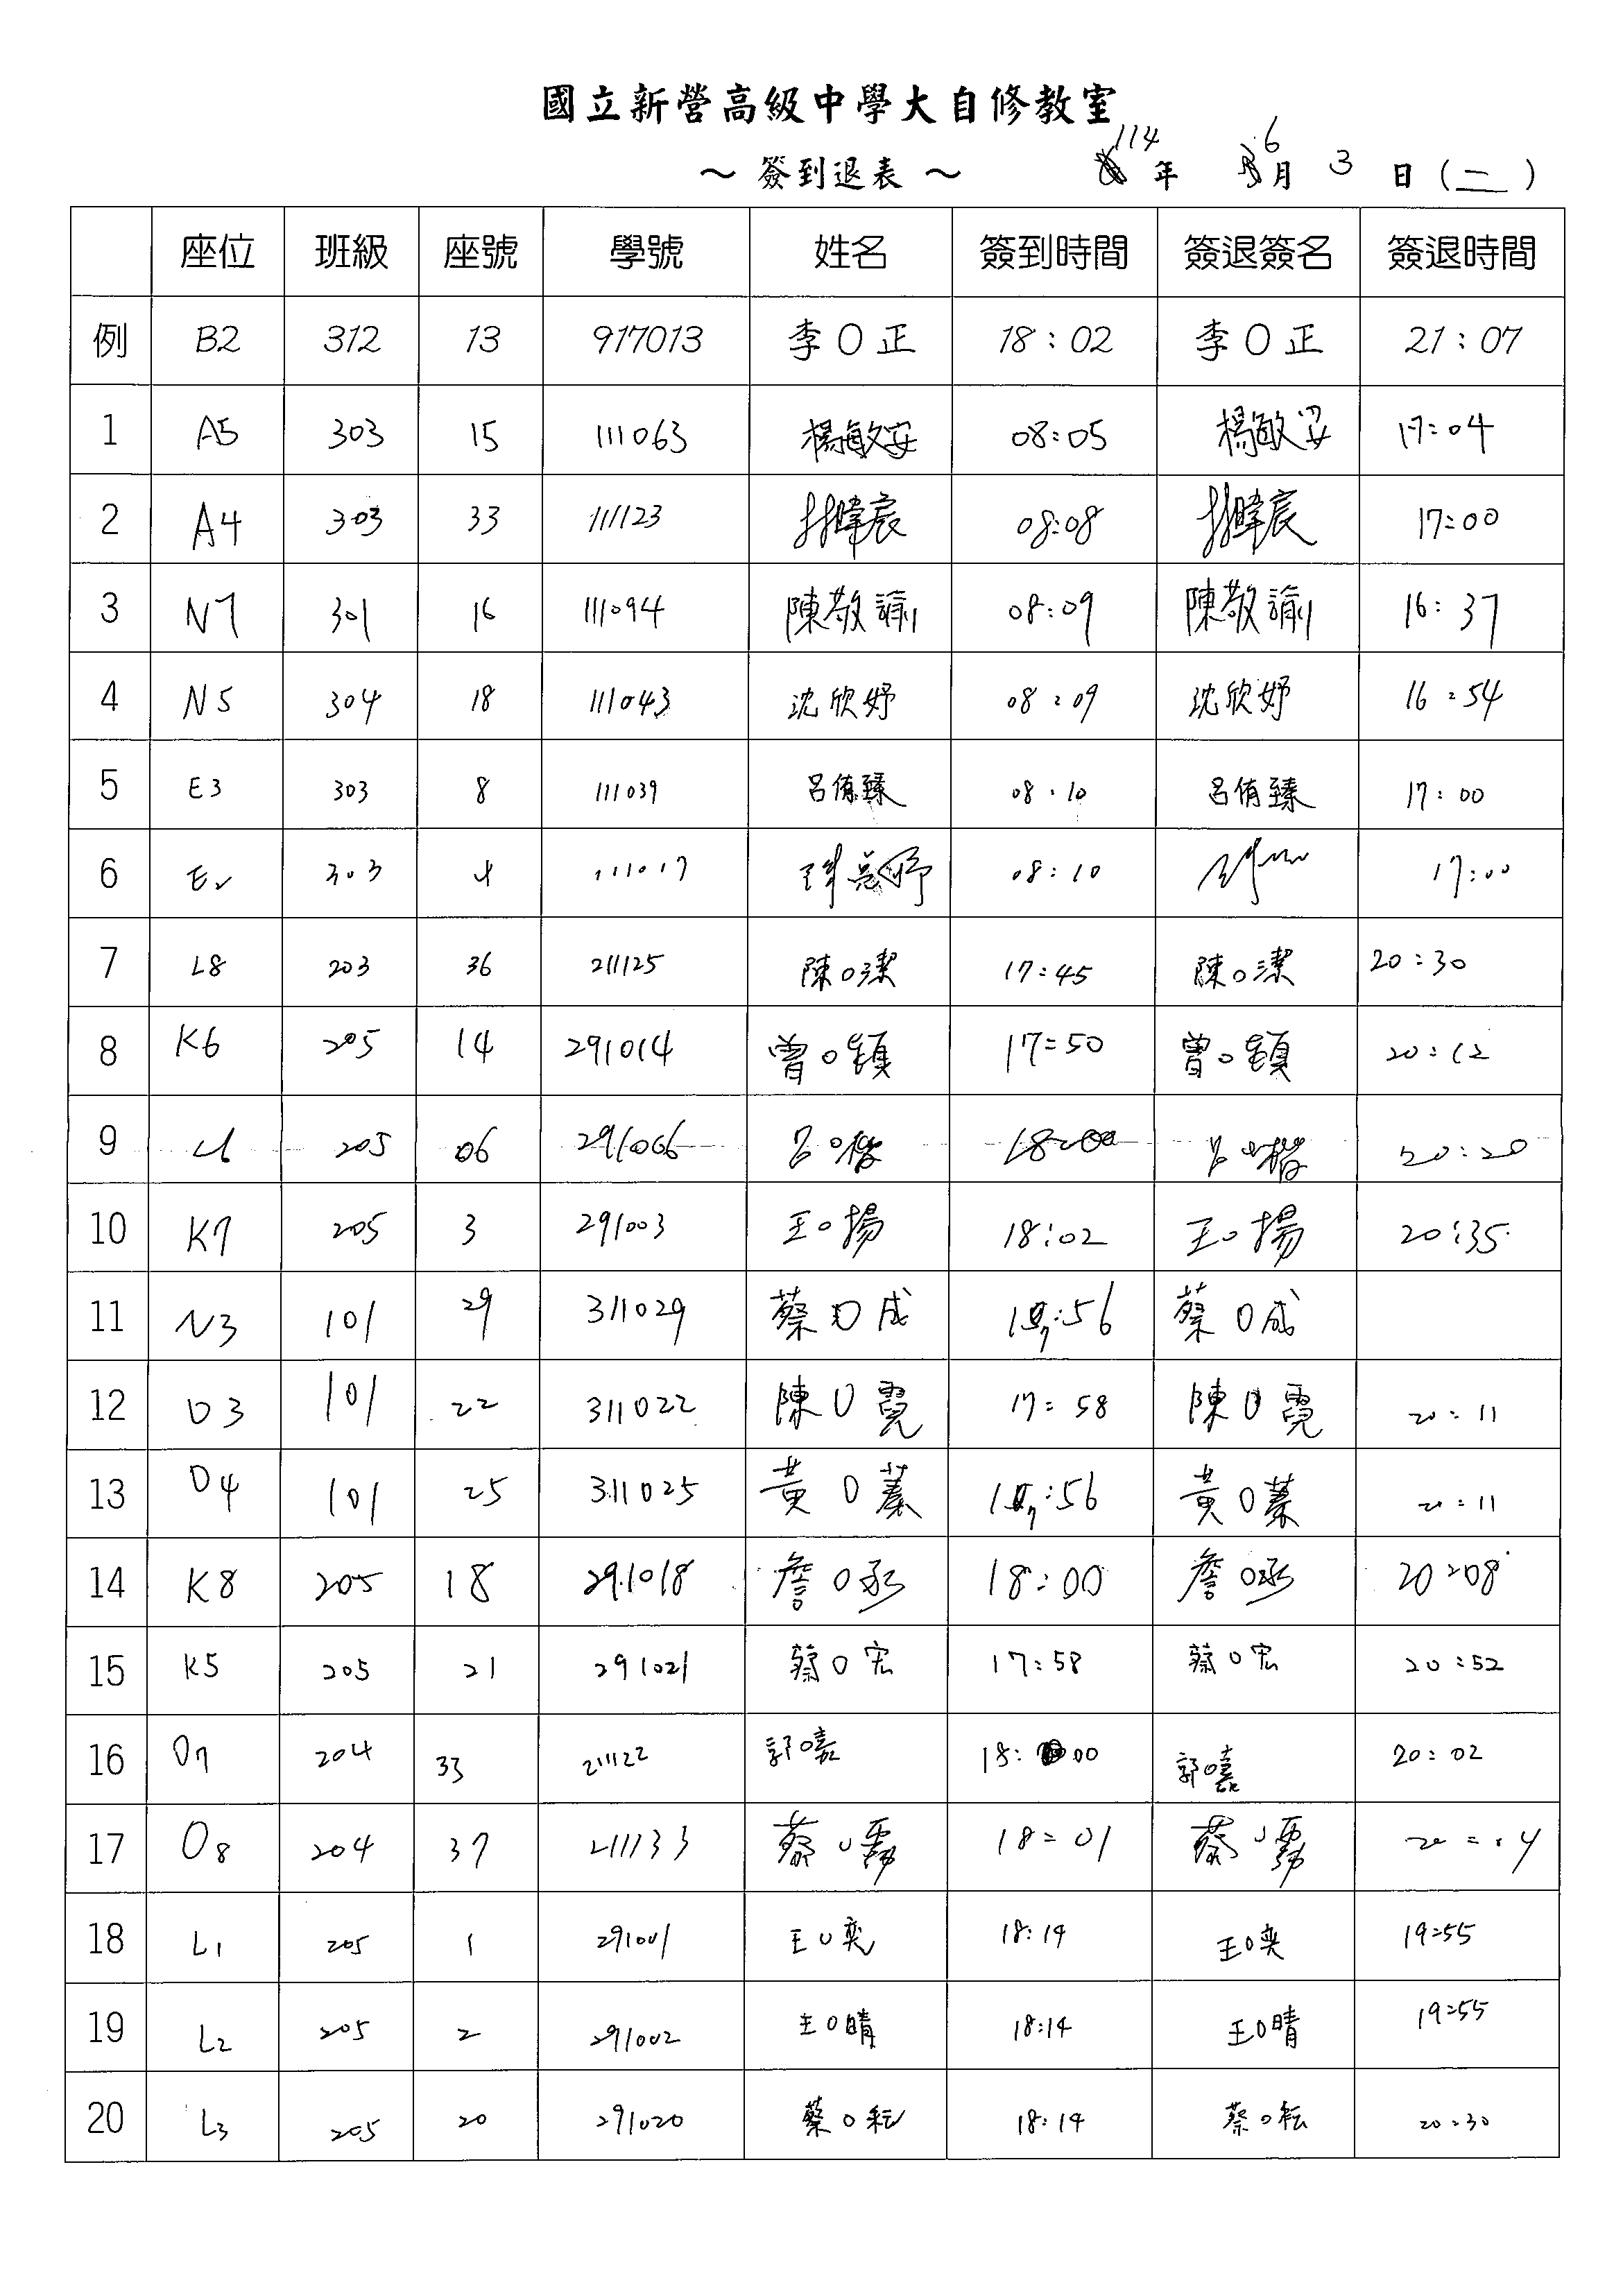 國立新營高級中學大自修教室
～ 簽到退表 ～ 114 年 6 月 3 日 (二)
座位 班級 座號 學號 姓名 簽到時間 簽退簽名 簽退時間
例 B2 312 13 917013 李O正 18:02 李O正 21:07
1 A5 303 15 111063 楊敏安 08:05 楊敏妥 17:04
2 A4 303 33 111123 林暐宸 08:08 林暐宸 17:00
3 N7 301 16 111094 陳敬諭 08:09 陳敬諭 16:37
4 N5 304 18 111043 沈欣妤 08:09 沈欣妤 16:54
5 E3 303 8 111039 呂侑臻 08:10 呂侑臻 17:00
6 E2 303 4 111017 08:10 17:00
7 L8 203 36 211125 陳O潔 17:45 陳O潔 20:30
8 K6 205 14 291014 曾O鎮 17:50 曾O鎮 20:12
9 L6 205 06 291006 呂O楷 18:00 呂O楷 20:20
10 K7 205 3 291003 王O揚 18:02 王O揚 20:35
11 N3 101 29 311029 蔡O成 17:56 蔡O成
12 O3 101 22 311022 陳O霓 17:58 陳O霓 20:11
13 O4 101 25 311025 黃O蓁 17:56 黃O蓁 20:11
14 K8 205 18 291018 詹O丞 18:00 詹O丞 20:08
15 K5 205 21 291021 蔡O宏 17:58 蔡O宏 20:52
16 O7 204 33 211122 郭O嘉 18:00 郭O嘉 20:02
17 O8 204 37 211133 蔡O霧 18:01 蔡O霧 20:04
18 L1 205 1 291001 王O奕 18:14 王O奕 19:55
19 L2 205 2 291002 王O晴 18:14 王O晴 19:55
20 L3 205 20 291020 蔡O耘 18:14 蔡O耘 20:30